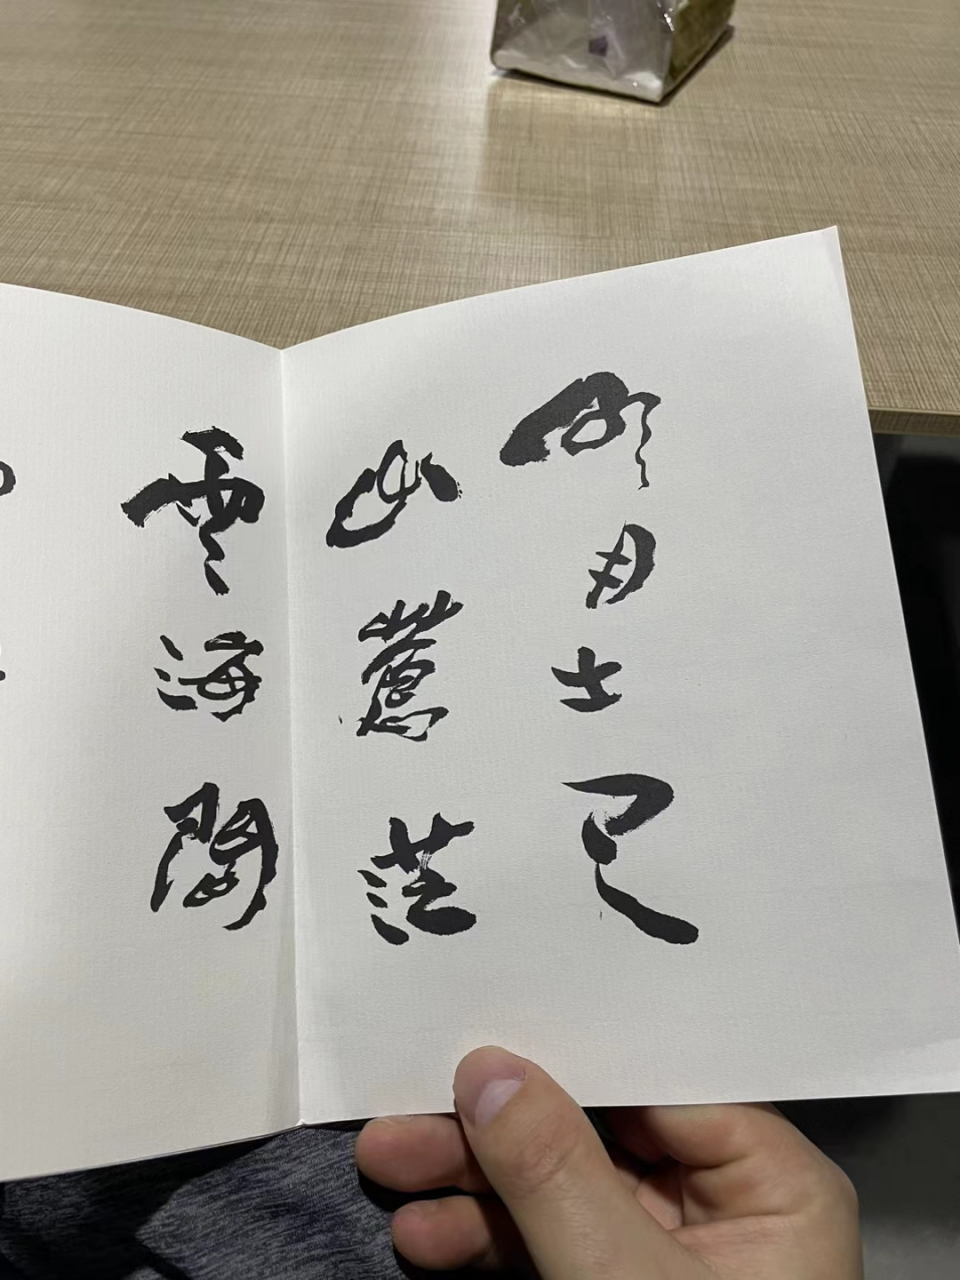 明月出天
山蒼茫
雲海間